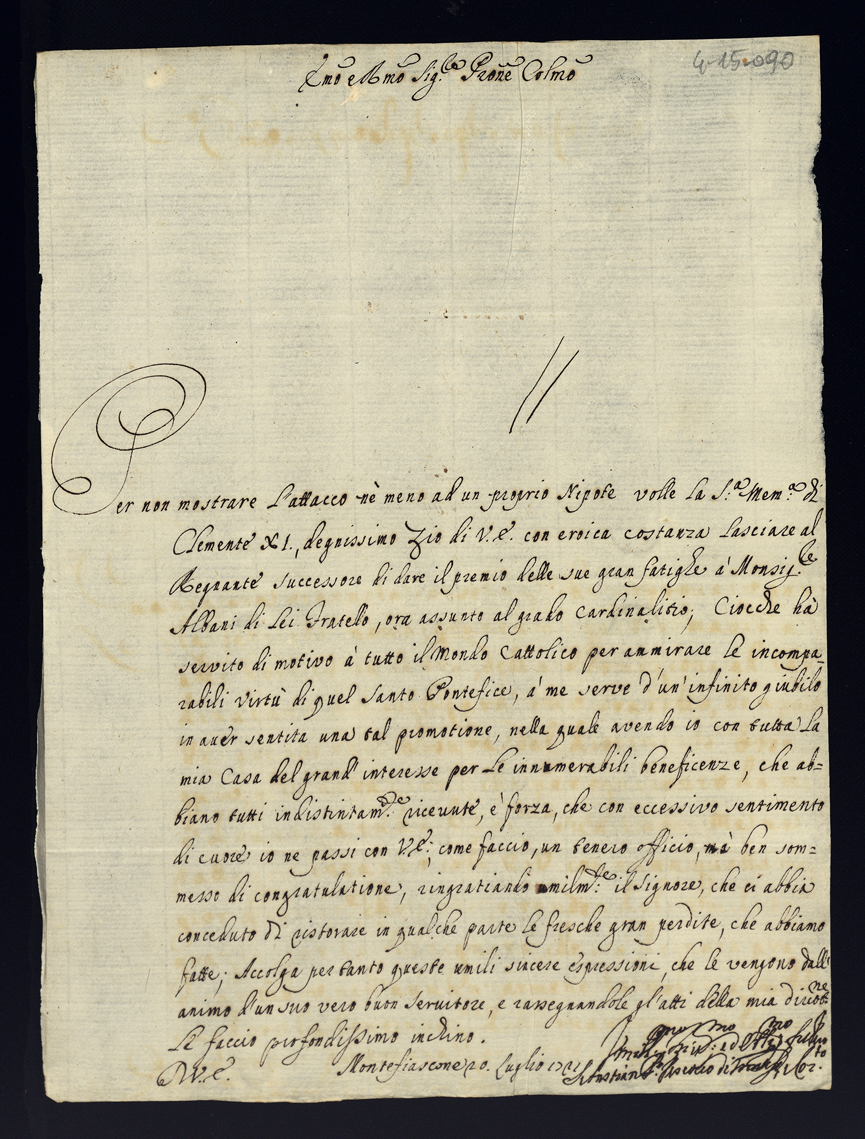 4-15-090
Emo e Rmo Sig.re Prone Colmo
Per non mostrare l'attacco nè meno ad un proprio Nipote volle la S.a Mem.a di
Clemente XI., degnissimo Zio di V.E. con eroica costanza lasciare al
Regnante successore di dare il premio delle sue gran fatighe à Monsig.re
Albani di Lei Fratello, ora assunto al grado Cardinalitio; Ciocche hà
servito di motivo à tutto il Mondo Cattolico per ammirare le incompa-
rabili virtù di quel Santo Pontefice, à me serve d'un'infinito giubilo
in aver sentita una tal promotione, nella quale avendo io con tutta la
mia Casa del grand'interesse per le innumerabili beneficenze, che ab=
biano tutti indistintam.te ricevute, è forza, che con eccessivo sentimento
di cuore io ne passi con V.E., come faccio, un tenero officio, mà ben som=
messo di congratulatione, ringratiando umilm.te il Signore, che ci abbia
conceduto di ristorare in qualche parte le fresche gran perdite, che abbiamo
fatte; Accolga per tanto queste umili sincere espressioni, che le vengono dall'
animo d'un suo vero buon servitore, e rassegnandole gl'atti della mia divot.ne
Le faccio profondissimo inchino.
D.V.E. Montefiascone 20. Luglio 1721